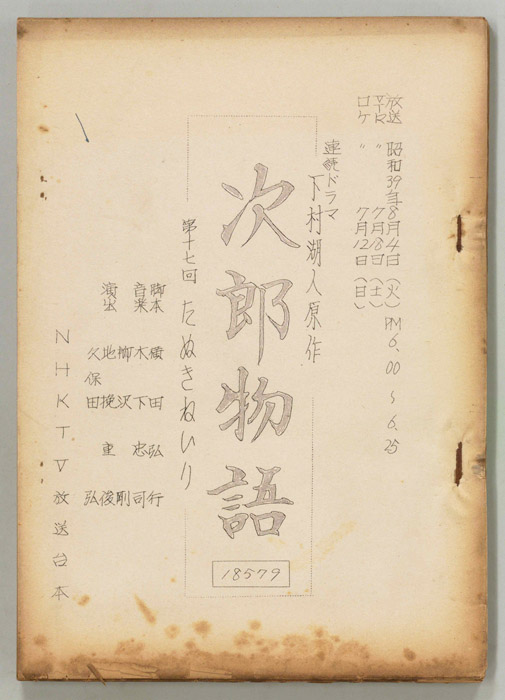 放送 昭和39年8月4日(火)PM6.00～6.25
VTR 〃 7月18日(土)
ロケ 〃 7月12日(日)
連続ドラマ
下村湖人原作
次郎物語
18579
第十七回 たぬきねいり
脚本 横田弘行
音楽 木下忠司
演出 柳沢剛
地挽重俊
久保田弘
NHKTV放送台本